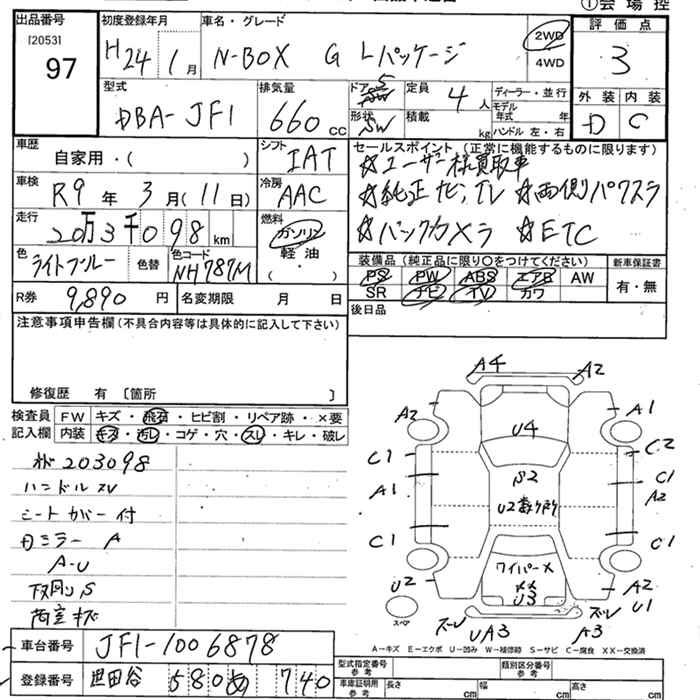 ①会場控
出品番号 初度登録年月 車名・グレード 評価点
[2053]
97
H24年 1月 N-BOX G Lパッケージ 2WD 4WD 3
型式 排気量 ドア 5 定員 4人 ディーラー・並行 外装 内装
DBA-JF1 660 cc 形状 SW 積載 kg モデル年式 年 ハンドル 左・右 D C
車歴 シフト セールスポイント (正常に機能するものに限ります)
自家用・( ) IAT ☆ユーザー様買取車
車検 R9年 3月(11日) 冷房 AAC ☆純正ナビ、TV ☆両側パワスラ
走行 20万3千098 km 燃料 ガソリン 軽油 ・( ) ☆バックカメラ ☆ETC
色 ライトブルー 色替 色コード NH787M
装備品 (純正品に限り○をつけてください) 新車保証書
PS PW ABS エアB AW
SR ナビ TV カワ 有・無
R券 9,890円 名変期限 月 日 後日品
注意事項申告欄(不具合内容等は具体的に記入して下さい)
修復歴 有 [箇所 ]
検査員 FW キズ・飛石・ヒビ割・リペア跡・×要
記入欄 内装 キズ・汚レ・コゲ・穴・スレ・キレ・破レ
203098
ハンドルスレ
シートカバー付
ミラー A
A-U
下廻りS
A4 A2
A2 A1
U4
C1 C2
S2
A1 C1
A2
U2数ヶ所
C1 C1
ワイパーX
XX
U2 U3 A2
U1
スペア
ズレ UA3 ズレ A3
A-キズ E-エクボ U-凹み W-補修跡 S-サビ C-腐食 XX-交換済
車台番号 JF1-1006878
登録番号 世田谷 580 あ 740
型式指定番号 参考 類別区分番号 参考
車庫証明用 参考 長さ cm 幅 cm 高さ cm